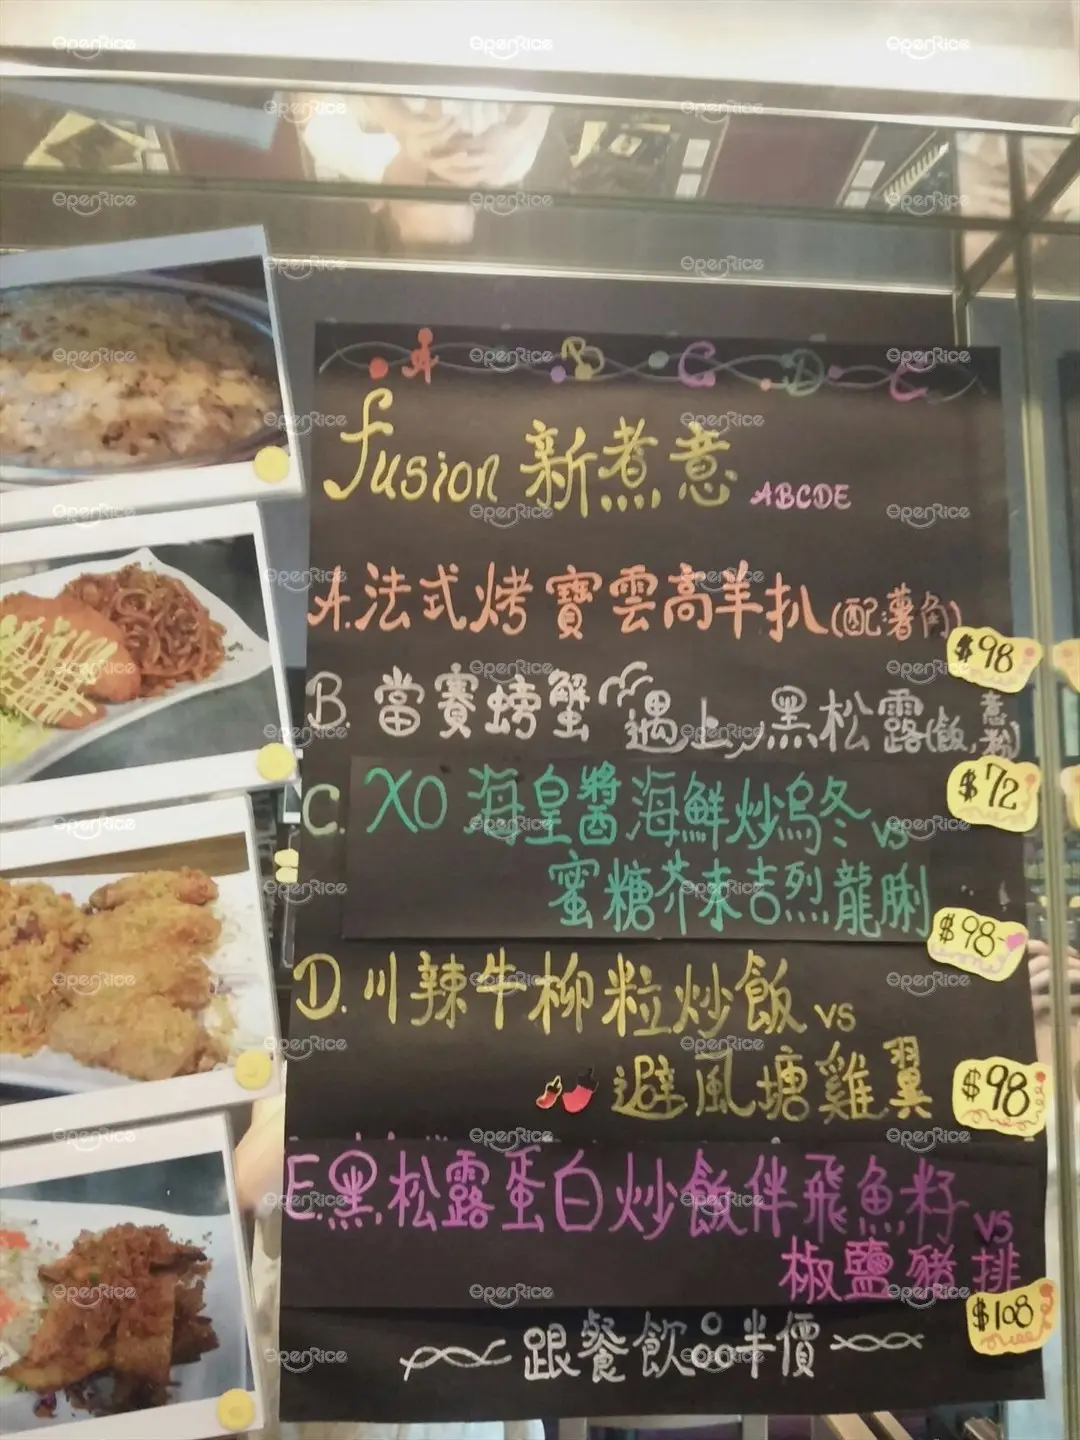 A B C D E
fusion 新煮意 ABCDE
A.法式烤寶雲高羊扒(配薯角)
$98
B.當賽螃蟹遇上黑松露(飯,意粉)
$72
C. XO海皇醬海鮮炒烏冬 vs
蜜糖芥末吉烈龍脷
$98-
D.川辣牛柳粒炒飯 vs
避風塘雞翼
$98
E.黑松露蛋白炒飯伴飛魚籽 vs
椒鹽豬排
$108
跟餐飲品半價
OpenRice